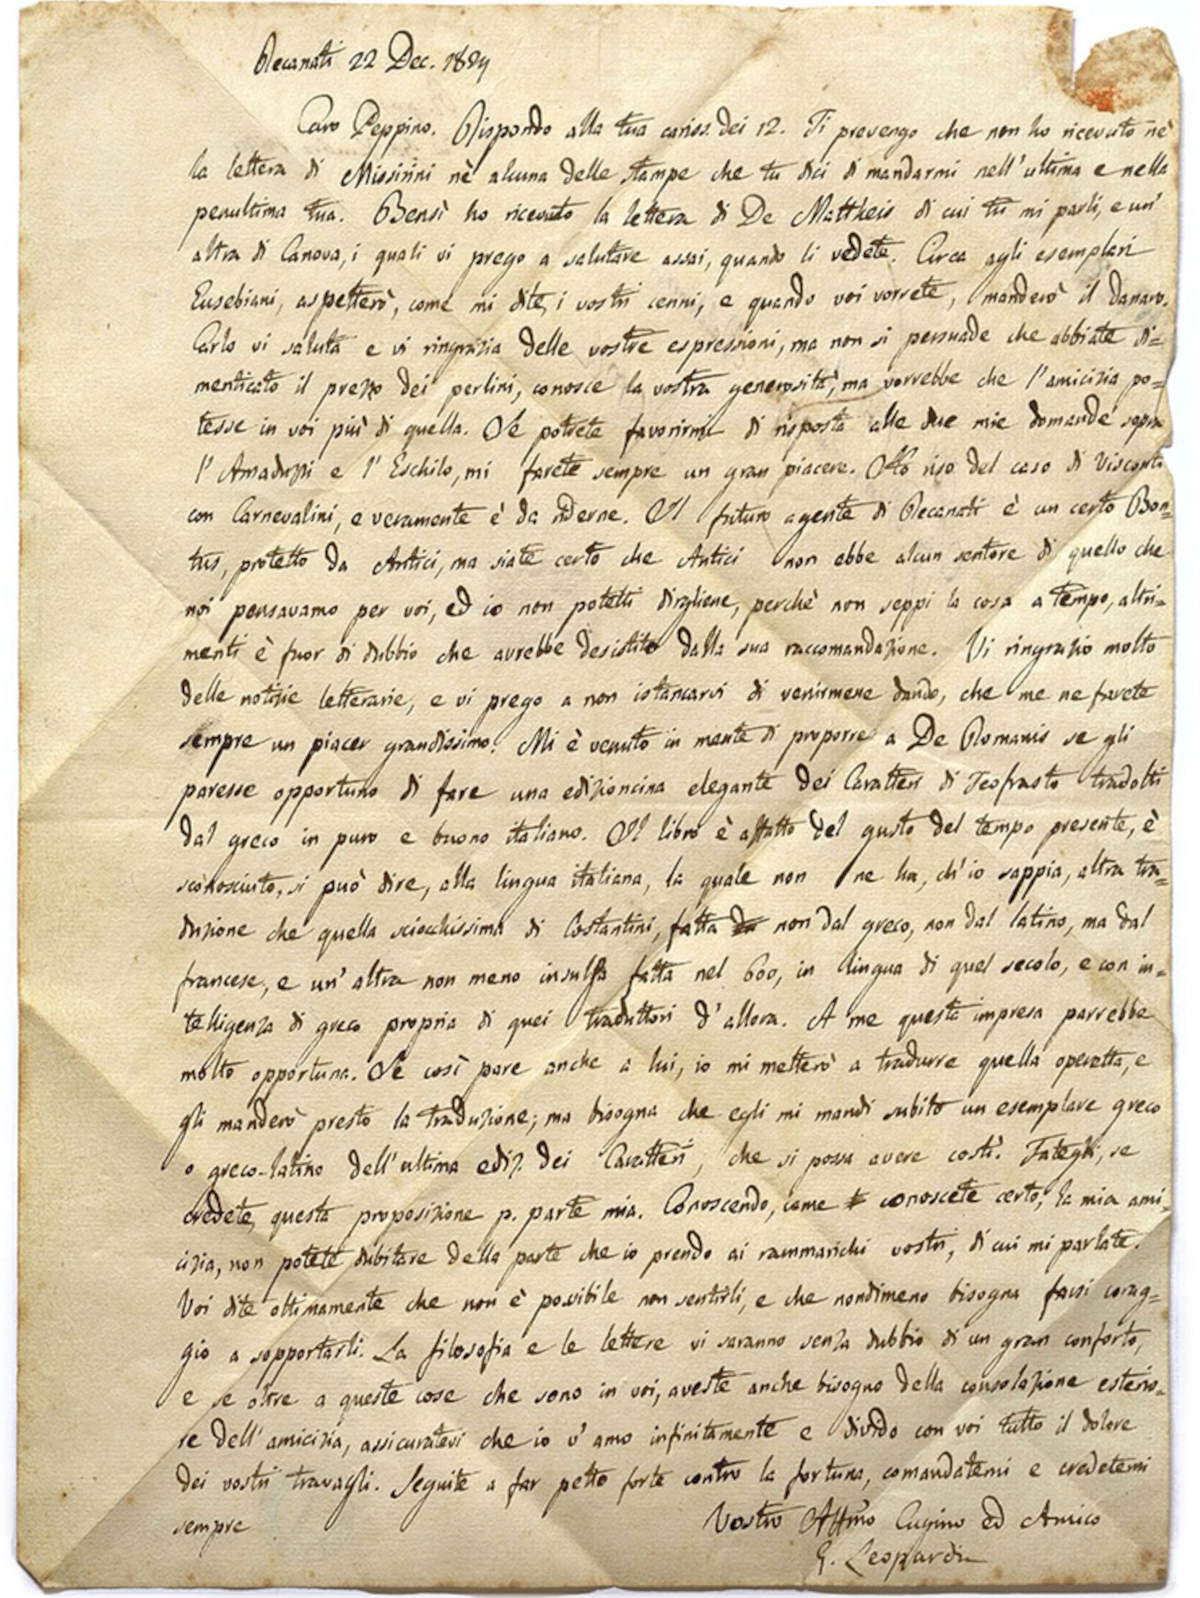 Recanati 22 Dec. 1824
Caro Peppino. Rispondo alla tua cariss. dei 12. Ti prevengo che non ho ricevuto nè
la lettera di Missirini nè alcuna delle stampe che tu dici di mandarmi nell'ultima e nella
penultima tua. Bensì ho ricevuto la lettera di De Mattheis di cui tu mi parli, e un'
altra di Canova, i quali vi prego a salutare assai, quando li vedete. Circa agli esemplari
Eusebiani, aspetterò, come mi dite, i vostri cenni, e quando voi vorrete, manderò il danaro.
Carlo vi saluta e vi ringrazia delle vostre espressioni, ma non si persuade che abbiate di=
menticato il prezzo dei perlini, conosce la vostra generosità, ma vorrebbe che l'amicizia po=
tesse in voi più di quella. Se potrete favorirmi di risposta alle due mie domande sopra
l'Amaduzzi e l'Eschilo, mi farete sempre un gran piacere. Ho riso del caso di Visconti
con Carnevalini, e veramente è da riderne. Il futuro agente di Recanati è un certo Bon=
tus, protetto da Antici, ma siate certo che Antici non ebbe alcun sentore di quello che
noi pensavamo per voi, ed io non potetti dirgliene, perchè non seppi la cosa a tempo, altri=
menti è fuor di dubbio che avrebbe desistito dalla sua raccomandazione. Vi ringrazio molto
delle notizie letterarie, e vi prego a non istancarvi di venirmene dando, che me ne farete
sempre un piacer grandissimo. Mi è venuto in mente di proporre a De Romanis se gli
paresse opportuno di fare una edizioncina elegante dei Caratteri di Teofrasto tradotti
dal greco in puro e buono italiano. Il libro è affatto del gusto del tempo presente, è
sconosciuto, si può dire, alla lingua italiana, la quale non ne ha, ch'io sappia, altra tra=
duzione che quella sciocchissima di Costantini, fatta non dal greco, non dal latino, ma dal
francese, e un'altra non meno insulsa fatta nel 600, in lingua di quel secolo, e con in=
telligenza di greco propria di quei traduttori d'allora. A me questa impresa parrebbe
molto opportuna. Se così pare anche a lui, io mi metterò a tradurre quella operetta, e
gli manderò presto la traduzione; ma bisogna che egli mi mandi subito un esemplare greco
o greco-latino dell'ultima ediz. dei Caratteri, che si possa avere costì. Fategli, se
credete, questa proposizione p. parte mia. Conoscendo, come conoscete certo, la mia ami=
cizia, non potete dubitare della parte che io prendo ai rammarichi vostri, di cui mi parlate.
Voi dite ottimamente che non è possibile non sentirli, e che nondimeno bisogna farsi corag=
gio a sopportarli. La filosofia e le lettere vi saranno senza dubbio di un gran conforto,
e se oltre a queste cose che sono in voi, aveste anche bisogno della consolazione esterio=
re dell'amicizia, assicuratevi che io v'amo infinitamente e divido con voi tutto il dolore
dei vostri travagli. Seguite a far petto forte contro la fortuna, comandatemi e credetemi
sempre
Vostro Affmo Cugino ed Amico
G. Leopardi